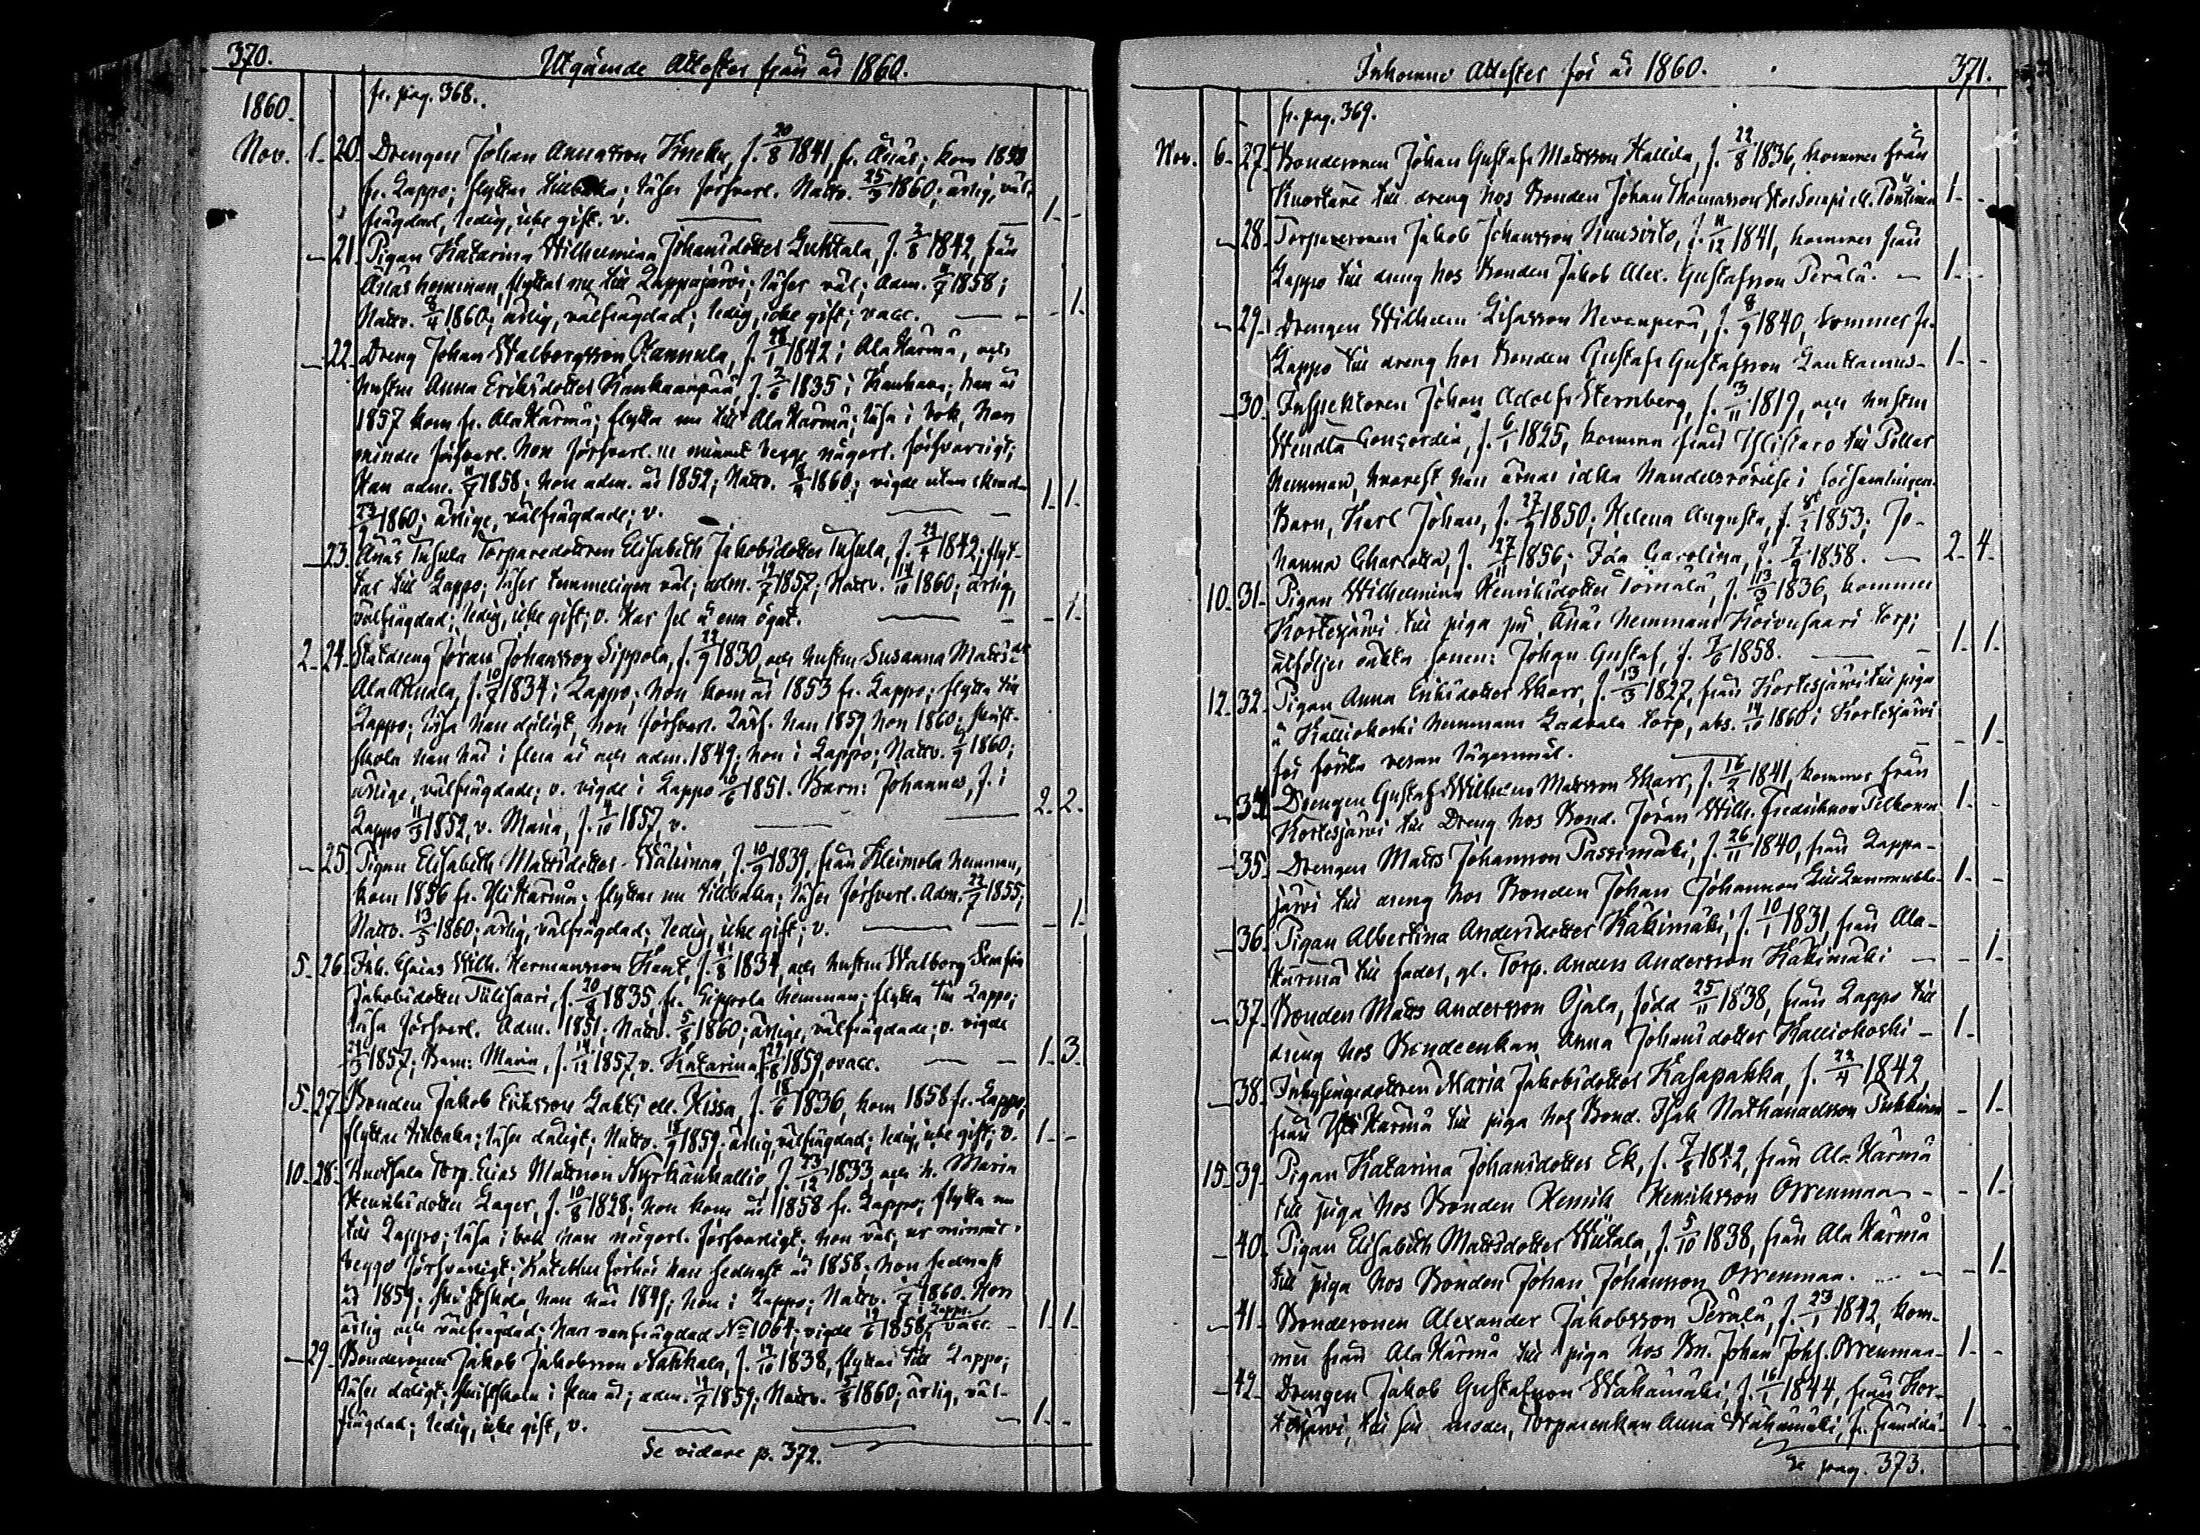 370.
Utgående Attester från år 1860.
fr. pag. 368.
1860.
Nov. 1. 20. Drengen Johan Annasson f. 20/8 1841, fr. Ånäs; kom 1858
fr. Lappo; flyttar tillbaka; läser försvarl. Nattv. 25/3 1860; ärlig, väl-
frägdad, ledig, icke gift. v. 1. -
21. Pigan Katarina Wilhelmina Johansdotter f. 3/8 1842, från
Ånäs hemman, flyttar nu till Lappajärvi; läser väl; adm. 1858;
Nattv. 8/4 1860; ärlig, välfrägdad; ledig, icke gift; vacc. - 1.
22. Dreng Johan Walborgsson Kannula, f. 1842 i AlaHärmä, och
hustru Anna Eriksdotter Kankaanpää, f. 2/6 1835 i Kauhava; han år
1857 kom fr. AlaHärmä; flytta nu till AlaHärmä; läsa i bok, han
mindre försvarl. hon försvarl. ur minnet begge någorl. försvarligt;
Han adm. 1858; hon adm. år 1852; Nattv. 1860; vigde utan
23/9 1860; ärlige, välfrägdade; v. 1. 1.
23. Ånäs Torparedottren Elisabeth Jakobsdotter f. 24/4 1842; flyt-
tar till Lappo; läser temmeligen väl; adm. 1857; Nattv. 14/10 1860; ärlig,
välfrägdad; ledig, icke gift; v. Har fel å ena ögat. - 1.
2. 24. Johansson Sippola, f. 1830, och hustru Susanna Mattsdr
f. 10/7 1834 i Lappo; hon kom år 1853 fr. Lappo; flytta till
Lappo; läsa han dåligt, hon försvarl. Läsf. han 1859, hon 1860; skrift-
skola han här i flera år och adm. 1849; hon i Lappo; Nattv. 1860;
ärlige, välfrägdade; v. vigde i Lappo 10/6 1851. Barn: Johannes, f. i
Lappo 1852, v. Maria, f. 1857, v. 2. 2.
25. Pigan Elisabeth Mattsdotter f. 10/9 1839, från Heimola hemman,
kom 1856 fr. YliHärmä; flyttar nu tillbaka; läser försvarl. Adm. 1855;
Nattv. 13/5 1860; ärlig, välfrägdad; ledig, icke gift; v. - 1.
5. 26. Inh. Wilh. Hermansson f. 1834, och hustru Walborg Serafia
Jakobsdotter f. 1835, fr. Sippola hemman; flytta till Lappo;
läsa försvarl. Adm. 1851; Nattv. 5/8 1860; ärlige, välfrägdade; v. vigde
1857; Barn: Maria, f. 14/12 1857, v. Katarina, 1859, ovacc. 1. 3.
5. 27. Bonden Jakob Eriksson ell. Kissa, f. 18/6 1836, kom 1858 fr. Lappo,
flyttar tillbaka; läser dåligt; Nattv. 1859; ärlig, välfrägdad; ledig, icke gift; v. 1. -
10. 28. Torp. Elias Mattsson Myrkänkallio, f. 23/12 1833, och h. Maria
Henriksdotter Lager, f. 10/8 1828; hon kom år 1858 fr. Lappo; flytta nu
till Lappo; läsa i bok han någorl. försvarligt. hon väl, ur minnet
begge försvarligt; han sednast år 1858; hon sednast
år 1859; skriftskola, han här 1849; hon i Lappo; Nattv. 1860. Hon
ärlig och välfrägdad; han vanfrägdad No 1064; vigde 1858 i Lappo vacc. 1. 1.
29. Bondesonen Jakob Jakobsson Nahkala, f. 1838, flyttar till Lappo;
läser dåligt; skriftskola i flera år; adm. 1859; Nattv. 5/8 1860; ärlig, väl-
frägdad; ledig, icke gift, v. 1. -
Se vidare p. 372.
Inkomne Attester för år 1860.
371.
fr. pag. 369.
Nov. 6. 27. Bondesonen Johan Gustaf Mattsson Kallila, f. 22/8 1836, kommer från
Kuortane till dreng hos Bonden Johan Thomasson ell. Pöntinen 1. -
28. Torparesonen Jakob Johansson Kuusisto, f. 11/12 1841, kommer från
Lappo till dreng hos Bonden Jakob Alex. Gustafsson Perälä. 1. -
29. Drengen Wilhelm Nevanperä, f. 8/9 1840, kommer fr.
Lappo till dreng hos Bonden Gustaf Gustafsson Lantamus. 1. -
30. Inspektoren Johan Adolf Sternberg, f. 3/11 1819, och hustru
Wendla Concordia, f. 6/1 1825, komma från Ylistaro till
hemman, hvarest han ärnar idka handelsrörelse i församlingen.
Barn, Karl Johan, f. 27/9 1850; Helena Augusta, f. 1853; Jo-
hanna Charlotta, f. 27/11 1856; Ida Carolina, f. 7/9 1858. 2. 4.
10. 31. Pigan Wilhelmina Henriksdotter Törmälä, f. 1836, kommer
Kortesjärvi till piga på Ånäs hemmans Koivusaari torp;
åtföljes oäkta sonen: Johan Gustaf, f. 7/6 1858. 1. 1.
12. 32. Pigan Anna Eriksdotter Skarr, f. 13/3 1827, från Kortesjärvi till piga
å Kalliokoski hemmans Ladvala torp, abs. 14/10 1860 i Kortesjärvi
för första resan lägersmål. - 1.
34. Drengen Gustaf Wilhelm Matsson Skarr, f. 16/2 1841, kommer från
Kortesjärvi till Dreng hos Bond. Jöran Wilh. Fredriksson 1. -
35. Drengen Matts Johansson Passimäki, f. 26/11 1840, från Lappa-
järvi till dreng hos Bonden Johan Johansson 1. -
36. Pigan Albertina Andersdotter Käkimäki, f. 10/1 1831, från Ala-
härmä till fader, gl. Torp. Anders Andersson Käkimäki - 1.
37. Bonden Matts Andersson Ojala, född 25/11 1838, från Lappo till
dreng hos Bondeenkan Anna Johansdotter Kalliokoski 1. -
38. Inhysingedottren Maria Jakobsdotter Kasapakka, f. 22/4 1842,
från YliHärmä till piga hos Bond. Isak Nathanaelsson - 1.
15. 39. Pigan Katarina Johansdotter Ek, f. 1842, från Ala Härmä
till piga hos Bonden Henrik Henriksson Orrenmaa - 1.
40. Pigan Elisabeth Mattsdotter Wiitala, f. 5/10 1838, från Ala Härmä
till piga hos Bonden Johan Johansson Orrenmaa. - 1.
41. Bondesonen Alexander Jakobsson Perälä, f. 23/1 1842, kom-
mer från Ala Härmä till piga hos Bn. Johan Joh:s. Orrenmaa 1. -
42. Drengen Jakob Gustafsson Wähämäki, f. 16/1 1844, från Kor-
tesjärvi, till sin moder, Torpareenkan Anna Wähämäki, 1. -
Se pag. 373.